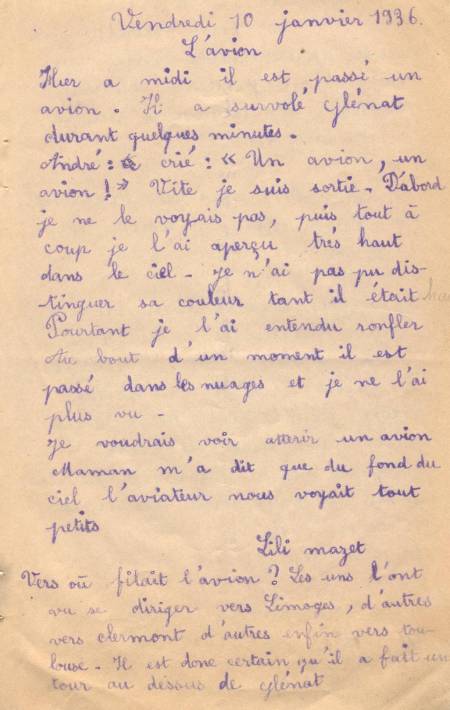 Vendredi 10 janvier 1936.
L'avion
Hier a midi il est passé un
avion. Il a survolé Glénat
durant quelques minutes.
André : a crié : « Un avion, un
avion ! » Vite je suis sortie. D'abord
je ne le voyais pas, puis tout à
coup je l'ai aperçu très haut
dans le ciel. Je n'ai pas pu dis-
tinguer sa couleur tant il était
Pourtant je l'ai entendu ronfler
Au bout d'un moment il est
passé dans les nuages et je ne l'ai
plus vu.
Je voudrais voir atterir un avion
Maman m'a dit que du fond du
ciel l'aviateur nous voyait tout
petits
Lili mazet
Vers où filait l'avion ? Les uns l'ont
vu se diriger vers Limoges, d'autres
vers clermont d'autres enfin vers tou-
louse. Il est donc certain qu'il a fait un
tour au dessus de Glénat